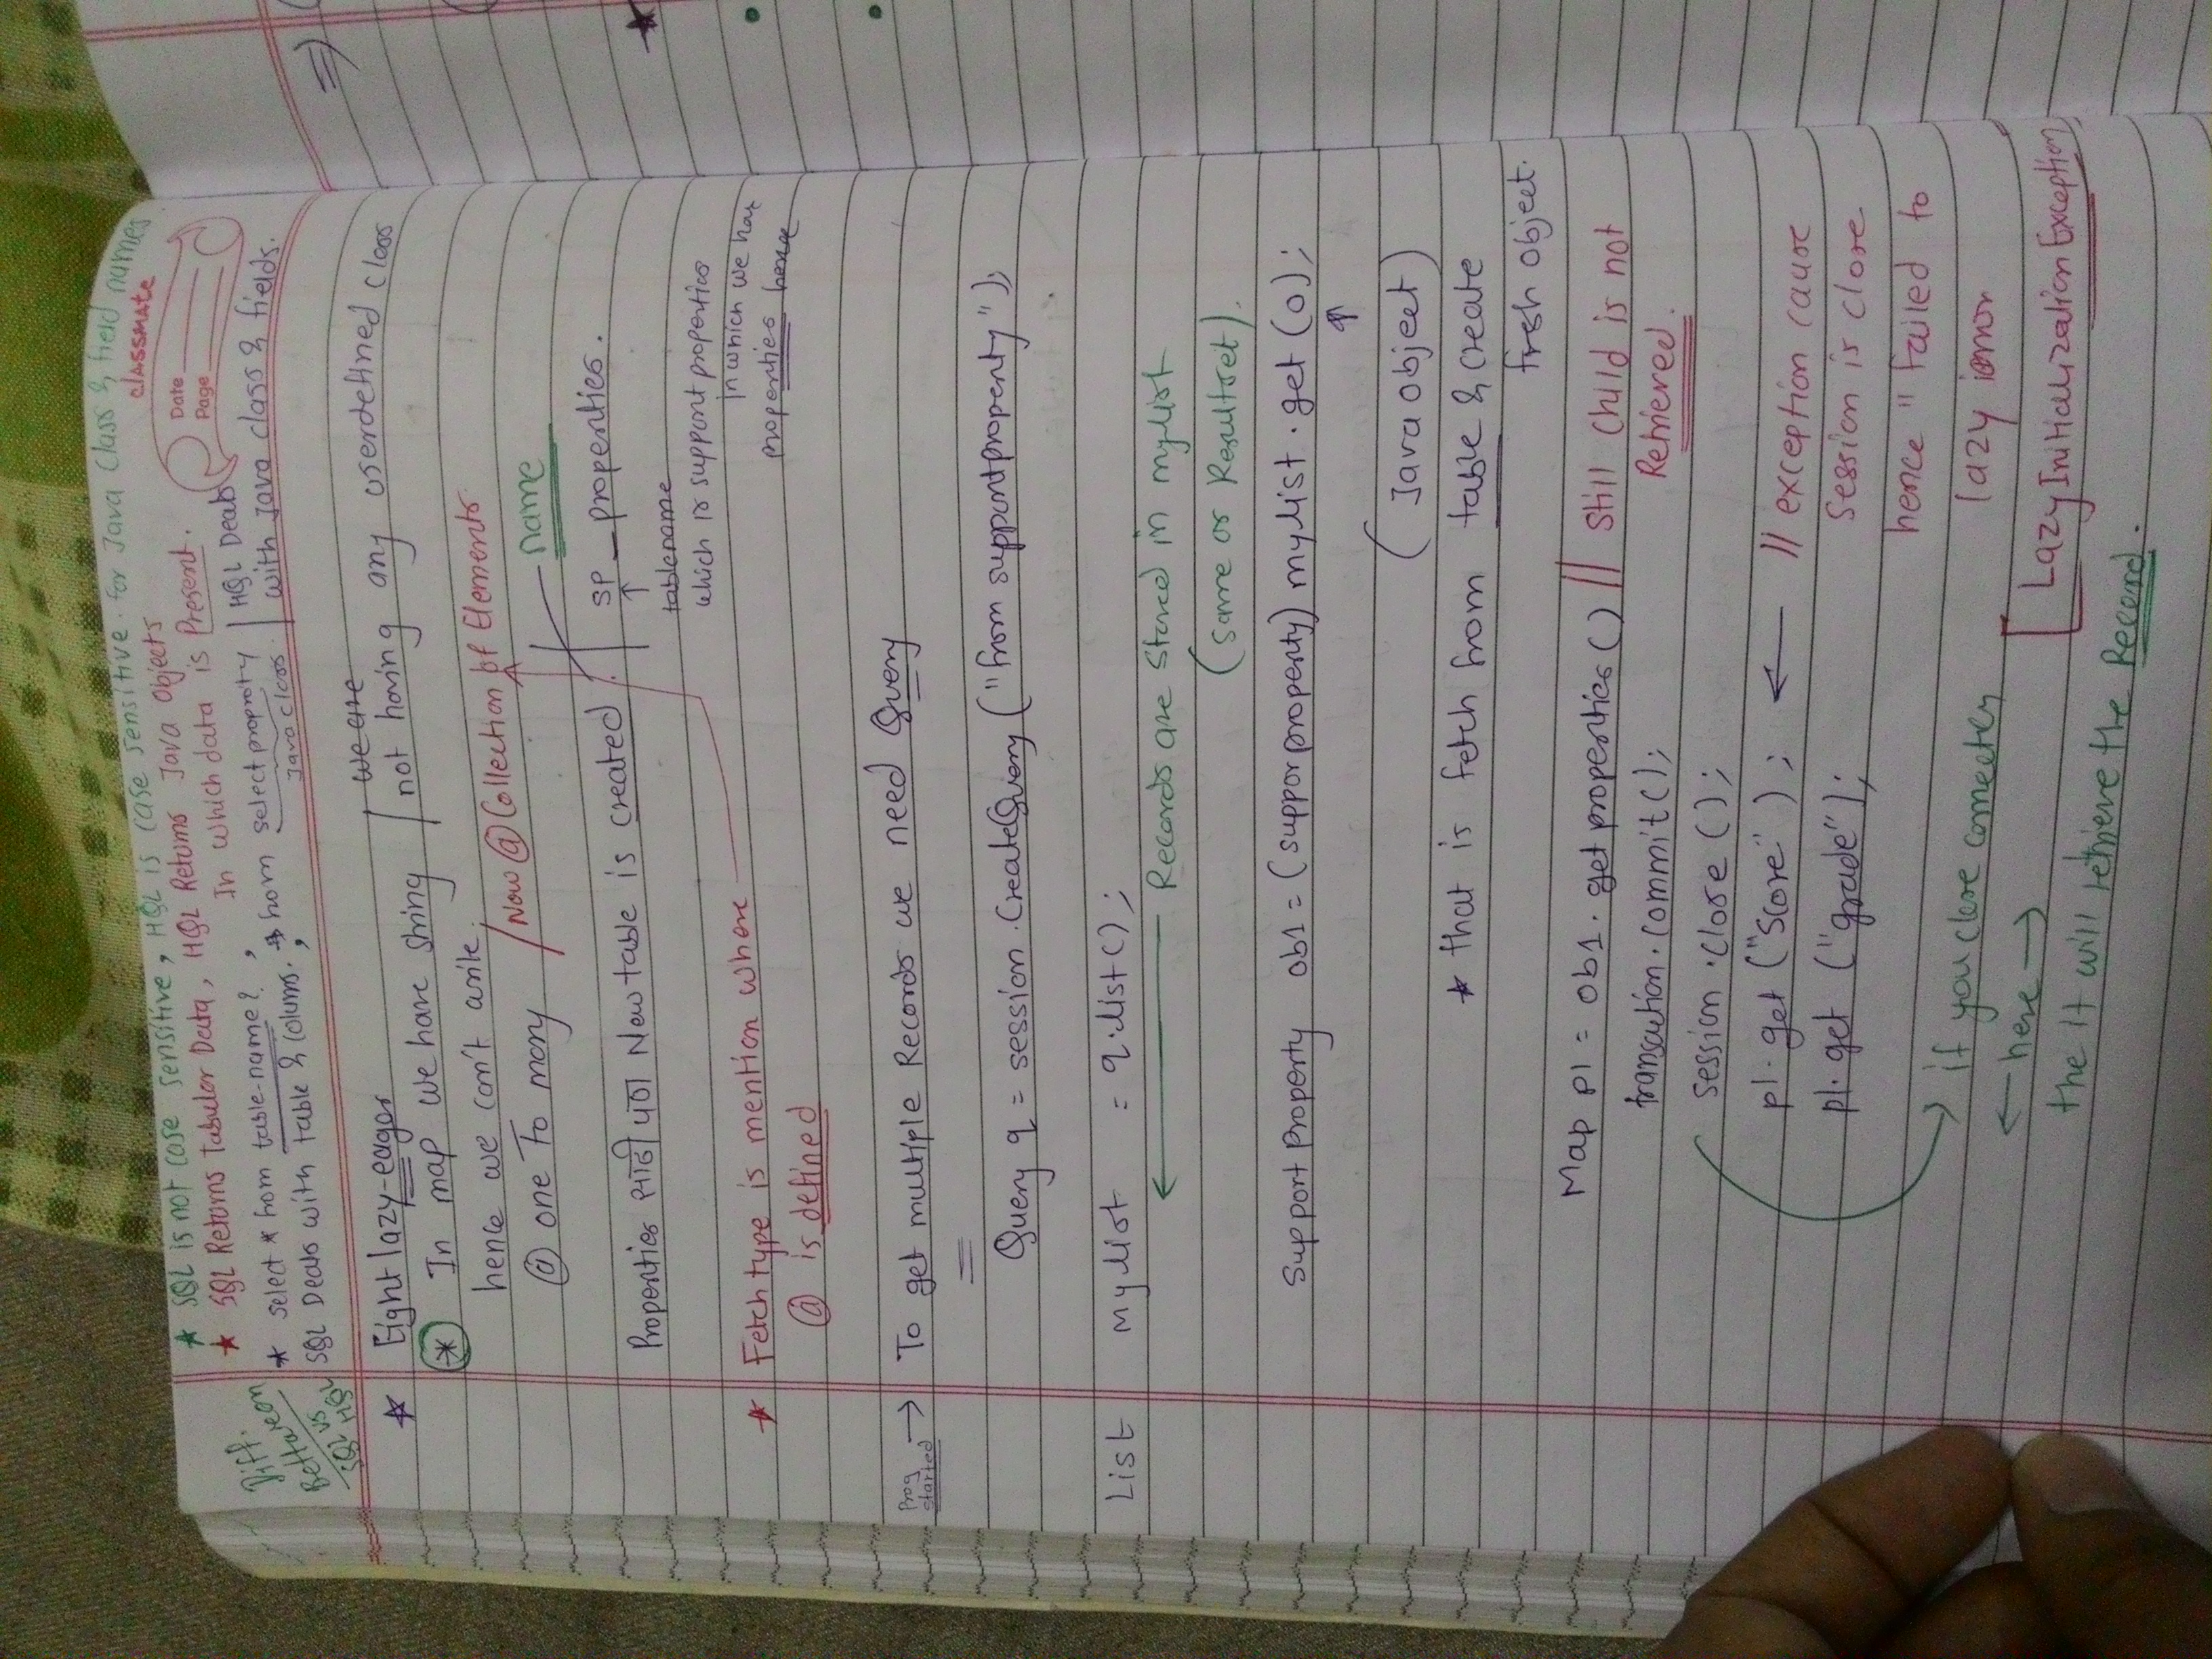 ★ SQL is not case sensitive, HQL is case sensitive. for Java Class & field names
classmate
★ SQL Returns Tabular Data, HQL Returns Java Objects
Date
Page
In which data is Present.
Diff.
Bettaween
SQL vs
HQL
* select * from table-name? , from select proproty | HQL Deals
SQL Deals with table & Colums. , Java class | with Java class & fields.
* Eight lazy-eager
we are
* In map we have string / not having any userdefined class
hence we can't write,
@ one To many / Now @ Collection of Elements
name
Properties साठी पण New table is created. | sp_properties.
↑
tablename
which is support properties
In which we have
properties hence
* Fetch type is mention where
@ is defined
Prog started → To get multiple Records we need Query
=
Query q = session.CreateQuery ("from supportproperty");
List mylist = q.list();
← Records are stored in mylist
(same as Resultset).
Support Property ob1 = (supporproperty) mylist.get(0);
↑
(Java object)
* that is fetch from table & create
fresh object.
Map p1 = ob1.get properties() // still child is not
Retrieved.
transaction.commit();
session.close();
p1.get ("score"); ← // exception cause
session is close
p1.get ("grade");
hence " failed to
lazy
LazyInitiallization Exception
→ if you close
← here →
the it will retrieve the Record.